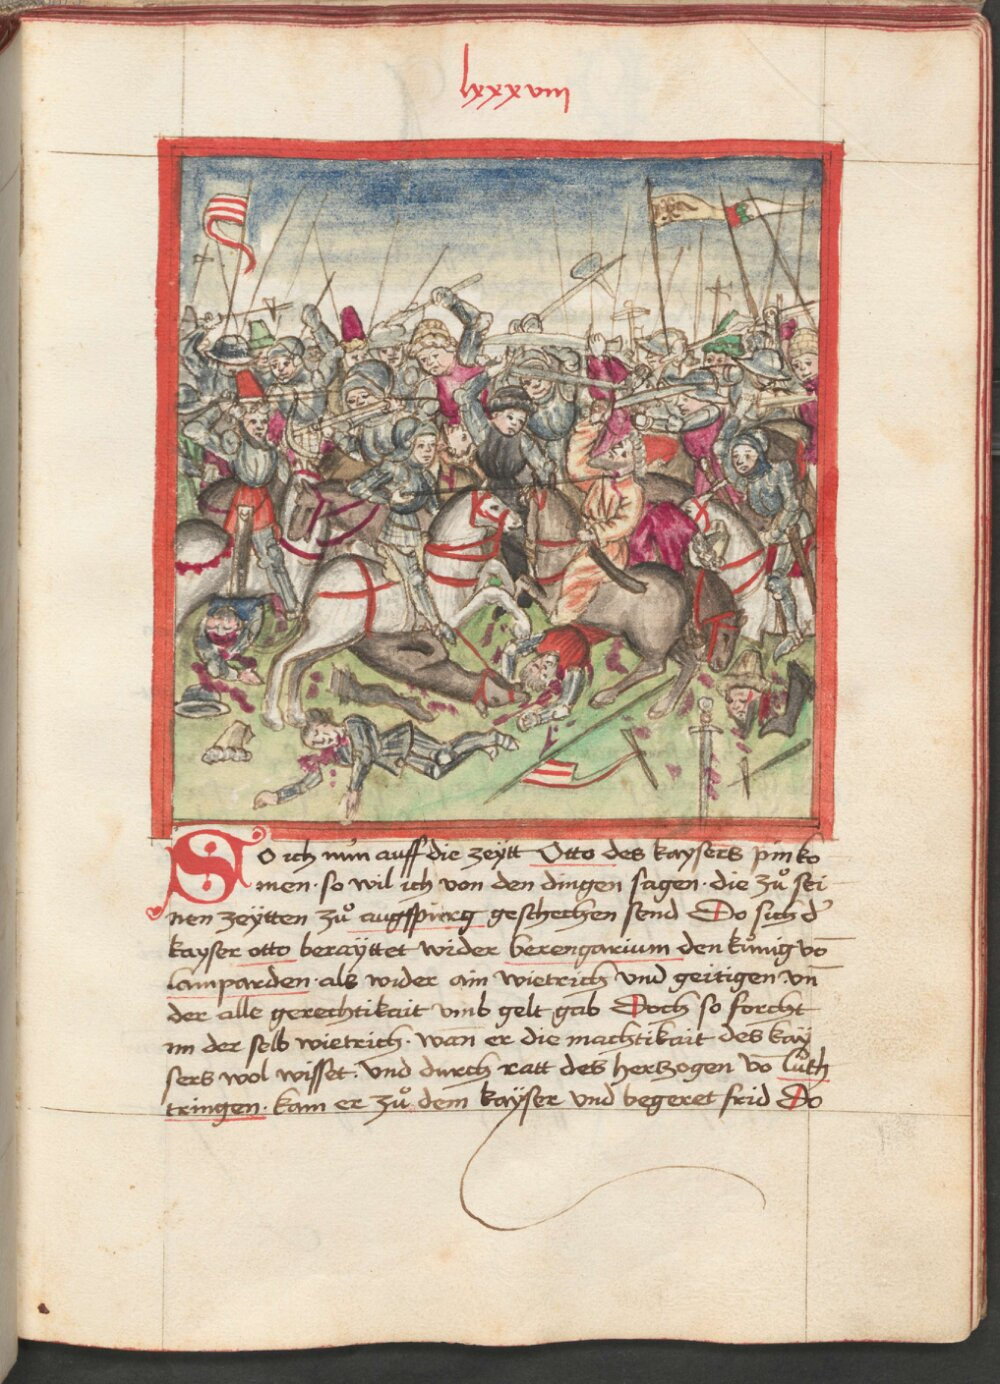 lxxxviii
So ich nun auff die zeytt Otto des kaysers pin ko
men · so wil ich von den dingen sagen · die zů sei
nen zeytten zů augspurg geschechen send Do sich d’
kayser otto berayttet wider berengarium den kůnig vō
lamparden · als wider ain wietrich vnd geitigen · vn̄
der alle gerechtikait vmb gelt gab Doch so forcht
im der selb wietrich · wan er die machtikait des kay
sers wol wisset · vnd durch ratt des hertzogen vō luth
tringen · kam er zů dem kayser vnd begeret frid Do